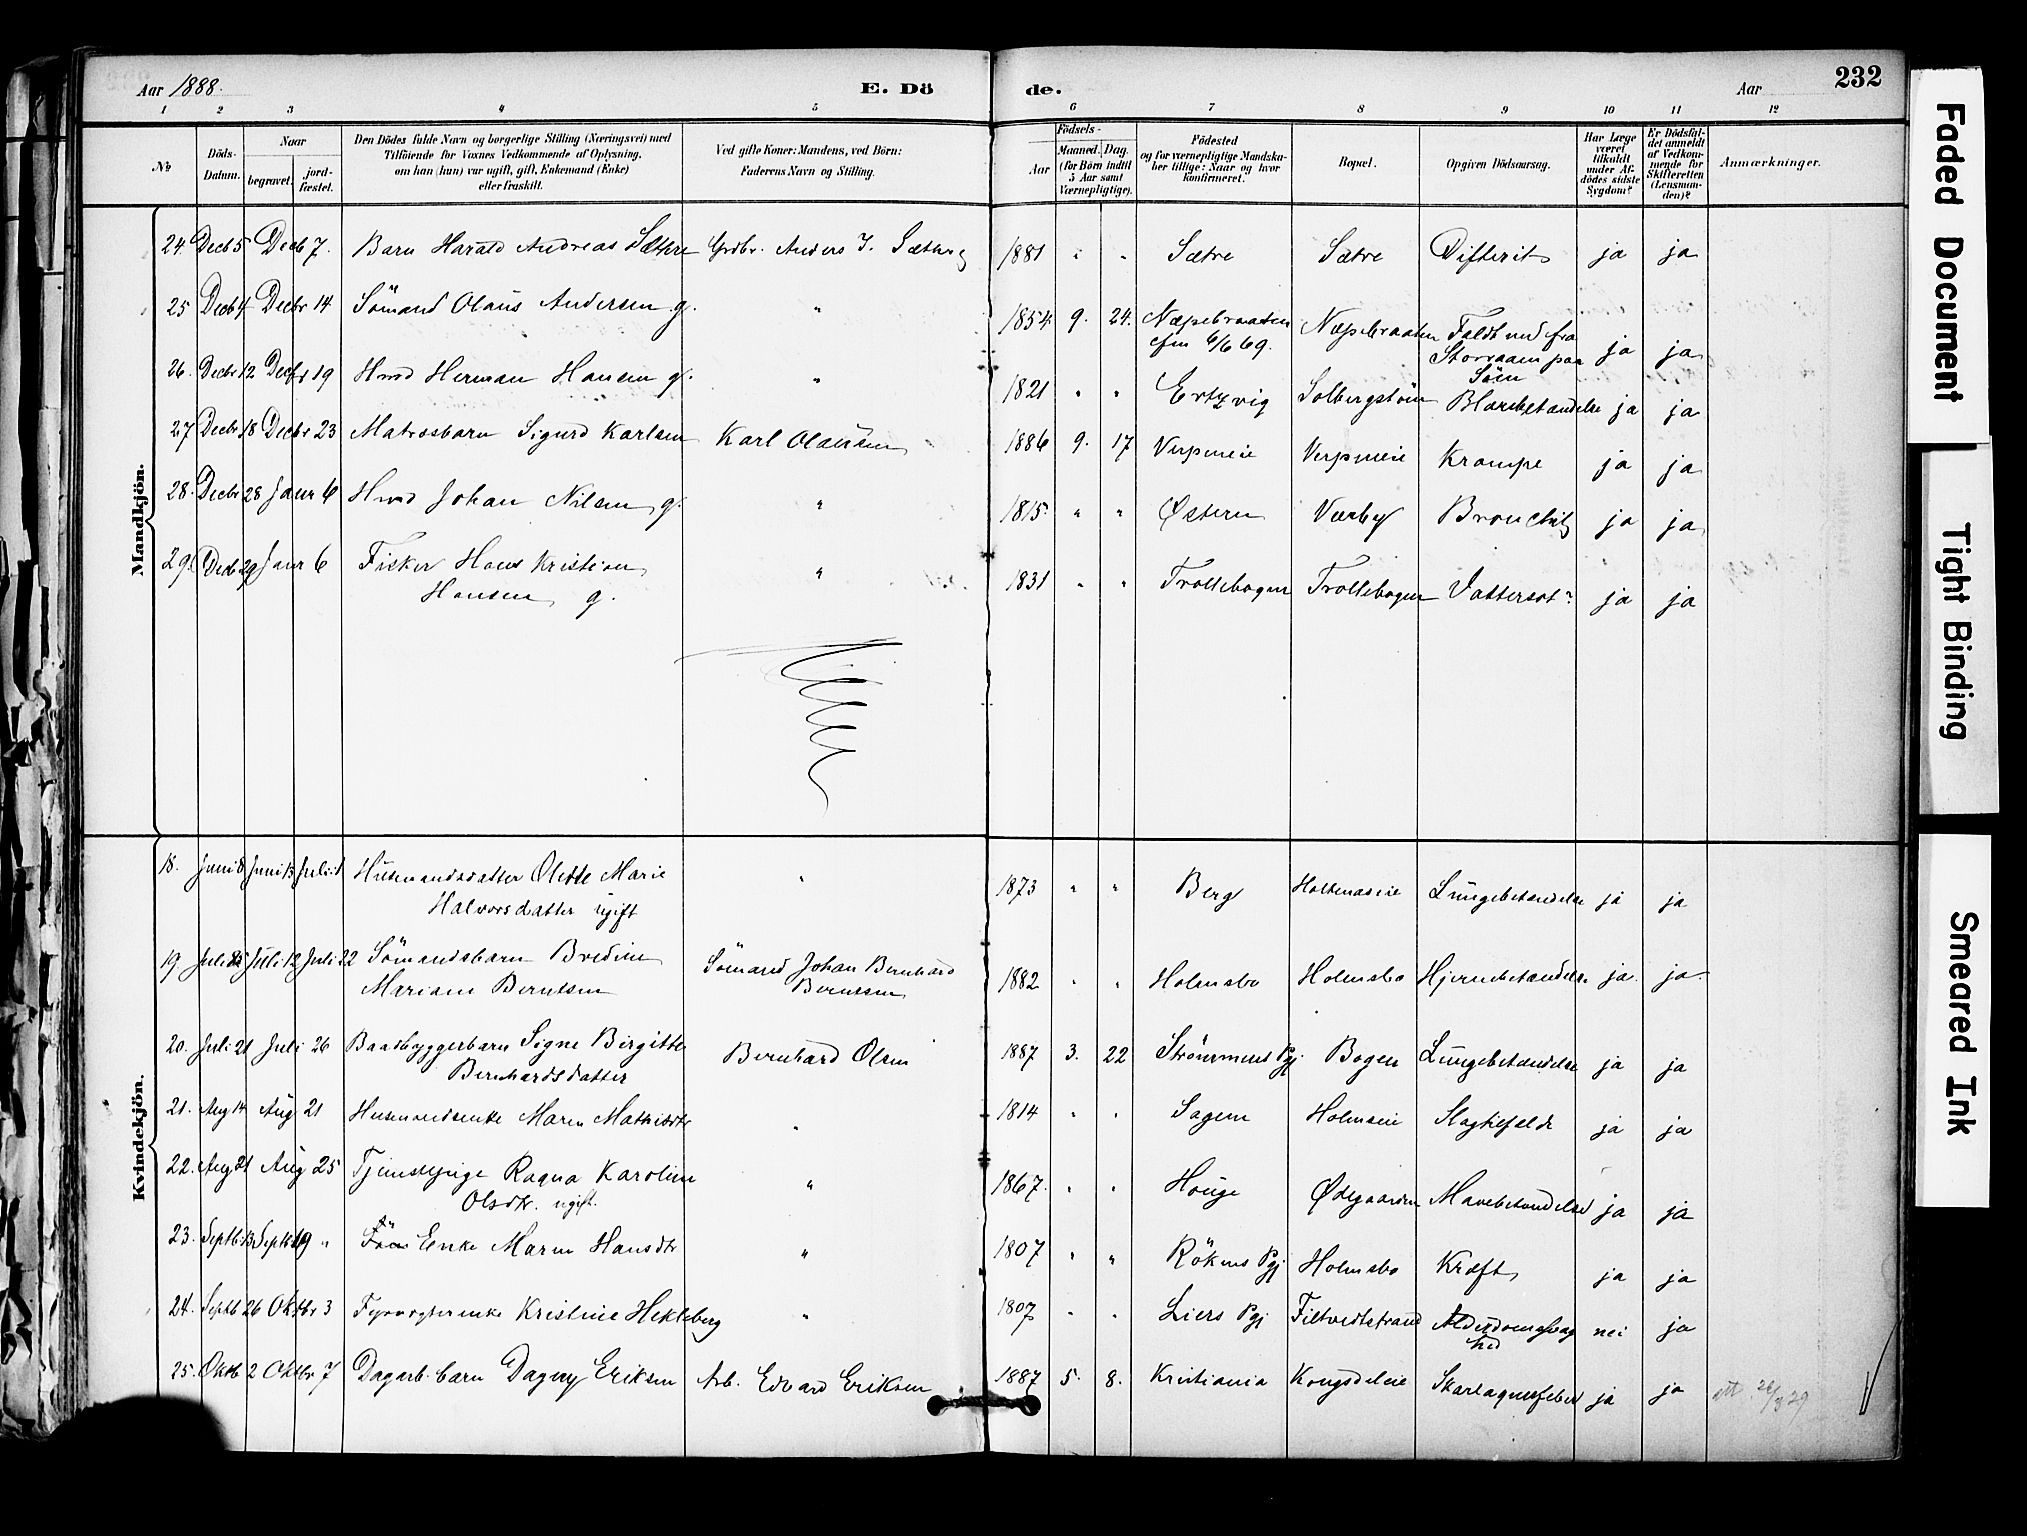 Aar 1888. E. Dö de. Aar 232
1 2 3 4 5 6 7 8 9 10 11 12
No
Döds-Datum.
Naar
begravet.
jord-fæstet.
Den Dödes fulde Navn og borgerlige Stilling (Næringsvei) med
Tilföiende for Voxnes Vedkommende af Oplysning,
om han (hun) var ugift, gift, Enkemand (Enke)
eller fraskilt.
Ved gifte Koner: Mandens, ved Börn:
Faderens Navn og Stilling.
Födsels-
Aar
Maaned. Dag.
(for Börn indtil
5 Aar samt
Værnepligtige).
Födested
og for værnepligtige Mandska-
ber tillige: Naar og hvor
konfirmeret.
Bopæl.
Opgiven Dödsaarsag.
Har Læge
været
tilkaldt
under Af-
dödes sidste
Sygdom?
Er Dödsfal-
det anmeldt
af Vedkom-
mende for
Skifteretten
(Lensman-
den)?
Anmærkninger.
Mandkjön.
24. Decb 5 Decb 7. Barn Harald Andreas Sæthre Grdbr. Anders J. Sæthre 1881 " " Sætre Sætre Difterit ja ja
25 Decb 4 Decbr 14 Sömand Olaus Andersen g. " 1854 9. 24. Næpebraaten Næpebraaten Faldt ned fra ja ja
cfm 6/6 69. Storraaen paa
Söen
26. Decbr 12 Decbr 19 Hmd Herman Hansen g. " 1821 " " Ertzvig Solbergströen Blærebetændelse ja ja
27 Decbr 18 Decbr 23 Matrosbarn Sigurd Karlsen Karl Olaussen 1886 9. 17 Verpmeie Verpmeie Krampe ja ja
28. Decbr 28 Janr 6 Hmd Johan Nilsen g. " 1815 " " Østern Værby Bronchit ja ja
29. Decb 29 Janr 6 Fisker Hans Kristian " 1831 " " Trollebogen Trollebogen Vattersot ja ja
Hansen g.
Kvindekjön.
18. Juni 8 Juni 13 Juli 1 Husmandsdatter Olette Marie " 1873 " " Berg Holtenaseie Lungebetændelse ja ja
Halvorsdatter ugift
19 Juli Juli 12 Juli 22 Sömandsbarn Bredine Sömand Johan Bernhard 1882 " " Holmsbo Holmsbo Hjernebetændelse ja. ja.
Mariane Berntsen Berntsen
20. Juli 21 Juli 26 Baadbyggerbarn Signe Birgitte Bernhard Olsen 1887 3. 22 Strömmens Pgj Bogen Lungebetændelse ja ja
Bernhardsdatter
21. Aug 14 Aug 21 Husmandsenke Maren Mathisdtr " 1814 " " Sagene Holmseie Slagtilfælde ja ja
22. Aug 21 Aug 25 Tjenestepige Ragna Karoline " 1867. " " Houge Ødegaarden Mavebetændelse ja ja
Olsdtr. ugift.
23. Septb. 13 Septb 19 " Enke Maren Hansdtr " 1807 " " Rökens Pgj Holmsbo Kræft ja ja
24. Septb 26 Oktbr 3 Fyrvogterenke Kristine Hekleberg " 1807 " " Liers Pgj Filtvedtstrand Alderdomssvag nei ja
hed
25. Oktb 2 Oktbr 7 Dagarb. barn Dagny Eriksen Arb. Edvard Eriksen 1887 5. 8. Kristiania Kongsdeleie Skarlagensfeber ja ja 26/3 29
Faded Document
Tight Binding
Smeared Ink